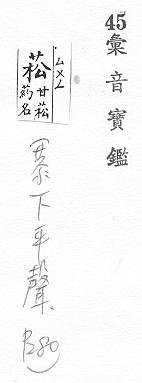 45
彙音寶鑑
ㄙㄨㄥ
菘
甘菘
葯名
下平聲, P280)